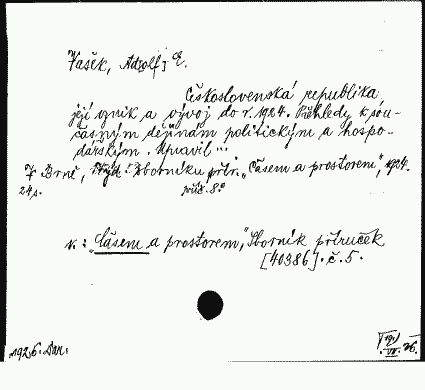 Vašek, Adolf E.
Československá republika
její vznik a vývoj do r. 1924. Přehledy k sou-
časným dějinám politickým a hospo-
dářským. Upravil ...
V Brně, Sborníku přír. „Časem a prostorem", 1924.
24 s. 8°
v: „Časem a prostorem," Sborník příruček
[40386]. č. 5.
1926. Dar.
26.